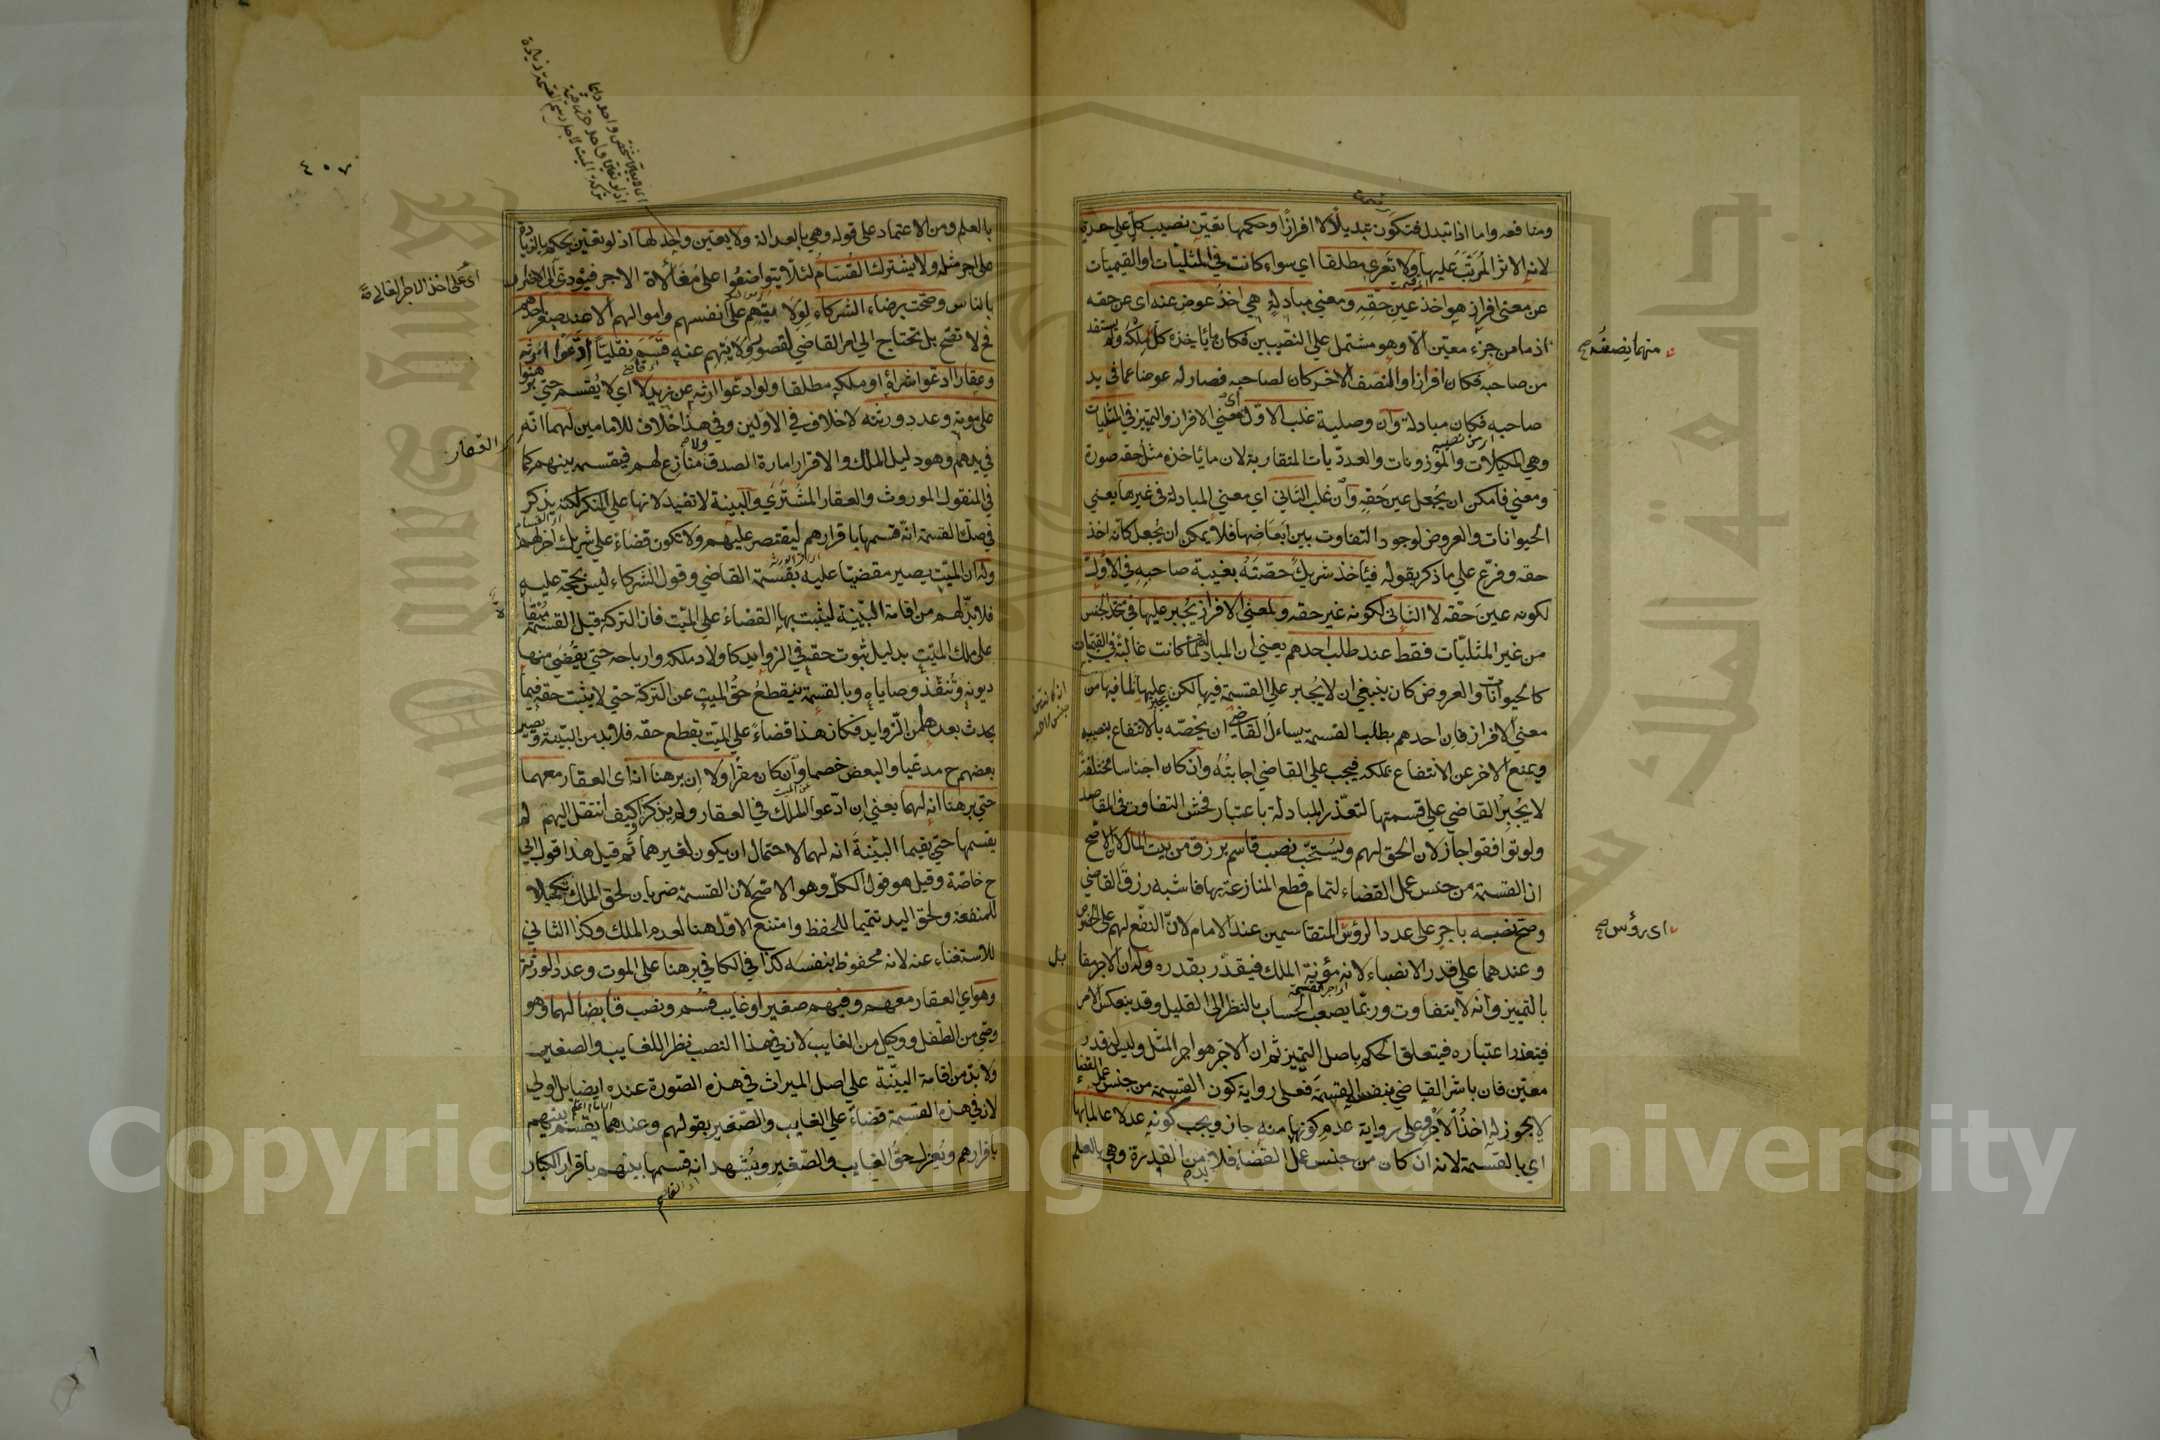 ومنافعه واما اذا تبدل فتكون تبديلا لا افرازا وحكمها تعيّن نصيب كل على حدة
لانه الاثر المرتّب عليها ولا تعرى مطلقا اى سواء كانت في المثليات او القيميات
عن معنى افراز هو اخذ عين حقه ومعنى مبادلة هي اخذ عوض عنه اى عن حقه
اذ ما من جزء معين الا وهو مشتمل على النصيبين فكان ما يأخذه كل ملكه ولم يستفد
من صاحبه فكان افرازا والنصف الاخر كان لصاحبه فصار له عوضا عما فى يد
صاحبه فكان مبادلة وان وصلية غلب الاول اى معنى الافراز والتميز في المثليات
وهي المكيلات والموزونات والعدديات المتقاربة لان ما يأخذه مثل حقه صورة
ومعنى فامكن ان يجعل عين حقه وان غلب الثاني اى معنى المبادلة فى غيرها يعني
الحيوانات والعروض لوجود التفاوت بين ابعاضها فلا يمكن ان يجعل كانه اخذ
حقه وفرع على ما ذكر بقوله فيأخذ شريك حصته بغيبة صاحبه في الاول
لكونه عين حقه لا الثاني لكونه غير حقه ولمعنى الافراز يجبر عليها في متحد الجنس
من غير المثليات فقط عند طلب احدهم يعني ان المبادلة لما كانت غالبة في القيميات
كالحيوانات والعروض كان ينبغي ان لا يجبر على القسمة فيها لكن يجبر عليها لما فيها من
معنى الافراز فان احدهم بطلب القسمة يسأل القاضي ان يخصه بالانتفاع بنصيبه
ويمنع الاخر عن الانتفاع بملكه فيجب على القاضي اجابته وان كان اجناسا مختلفة
لا يجبر القاضي على قسمتها لتعذر المبادلة باعتبار فحش التفاوت فى المقاصد
ولو توافقوا جاز لان الحق لهم ويستحب نصب قاسم برزق من بيت المال لان الاصح
ان القسمة من جنس عمل القضاء لتمام قطع المنازعة بها فاشبه رزق القاضي
وصح نصبه باجر على عدد الرؤس المتقاسمين عند الامام لان النفع لهم على الخصوص
وعندهما على قدر الانصباء لانه مؤنة الملك فيقدر بقدره وله ان الاجر مقابل
بالتمييز وانه لا يتفاوت وربما يصعب الحساب بالنظر الى القليل وقد ينعكس الامر
فيتعذر اعتباره فيتعلق الحكم باصل التمييز ثم ان الاجر هو اجر المثل وليس له قدر
معين فان باشر القاضي بنفسه القسمة فعلى رواية كون القسمة من جنس عمل القضاء
لا يجوز له اخذ الاجر وعلى رواية عدم كونها منه جاز ويجب كونه عدلا عالما بها
اي بالقسمة لانه ان كان من جنس عمل القضاء فلا بد من القدرة وهى بالعلم
منهما نصفه صح
اى رؤس صح
بل
٤٠٧
بالعلم ومن الاعتماد على قوله وهي بالعدالة ولا يعين واحد لها اذ لو تعين يحكم بالزيادة
على اجر مثله ولا يشترك القسام لئلا يتواضعوا على مغالاة الاجر فيؤدى الى الاضرار
بالناس وصحت برضاء الشركاء لولايتهم على انفسهم واموالهم الا عند صغر احدهم
فح لا تصح بل تحتاج الى امر القاضي لقصور ولايتهم عنه قسم نقليا ادعوا ارثه
وعقارا ادعوا شراءه او ملكه مطلقا ولو ادعوا ارثه عن زيد لا اى لا يقسم حتى برهنوا
على موته وعدد ورثته لا خلاف في الاولين وفي هذا خلاف للامامين لهما انه
في يدهم وهو دليل الملك والاقرار امارة الصدق ولا منازع لهم فيقسم بينهم كما
في المنقول الموروث والعقار المشترى والبينة لا تفيد لانها على المنكر لكنه يذكر
في صك القسمة انه قسمها باقرارهم ليقتصر عليهم ولا تكون قضاء على شريك اخر لهم
وله ان الميت يصير مقضيا عليه بقسمة القاضي وقول الشركاء ليس بحجة عليه
فلا بد لهم من اقامة البينة ليثبت بها القضاء على الميت فان التركة قبل القسمة مبقاة
على ملك الميت بدليل ثبوت حقه في الزوايد كاولاد ملكه وارباحه حتى يقضى منها
ديونه وتنفذ وصاياه وبالقسمة ينقطع حق الميت عن التركة حتى لا يثبت حقه فيما
يحدث بعدها من الزوايد فكان هذا قضاء على الميت بقطع حقه فلا بد من البينة ويصير
بعضهم ح مدعيا والبعض خصما وان كان مقرا ولا ان برهنا انه اى العقار معهما
حتى برهنا انه لهما يعني ان ادعوا الملك في العقار ولم يذكروا كيف انتقل اليهم لم
يقسمها حتى يقيما البينة انه لهما لاحتمال ان يكون لغيرهما ثم قيل هذا قول ابي
ح خاصة وقيل هو قول الكل وهو الاصح لان القسمة ضربان لحق الملك تكميلا
للمنفعة ولحق اليد تتميما للحفظ وامتنع الاول هنا لعدم الملك وكذا الثاني
للاستغناء عنه لانه محفوظ بنفسه كذا في الكافي برهنا على الموت وعدد الورثة
وهو اى العقار معهم وفيهم صغير او غايب قسم ونصب قابضا لهما وهو
وصي من الطفل ووكيل من الغايب لان في هذا النصب نظرا للغايب والصغير
ولا بد من اقامة البينة على اصل الميراث في هذه الصورة عنده ايضا بل اولى
لان في هذه القسمة قضاء على الغايب والصغير بقولهم وعندهما يقسم بينهم
باقرارهم ويعزل حق الغايب والصغير ويشهد انه قسمها بينهم باقرار الكبار
اى على اخذ الاجر الغالى
العقار
Copyright © King Saud University